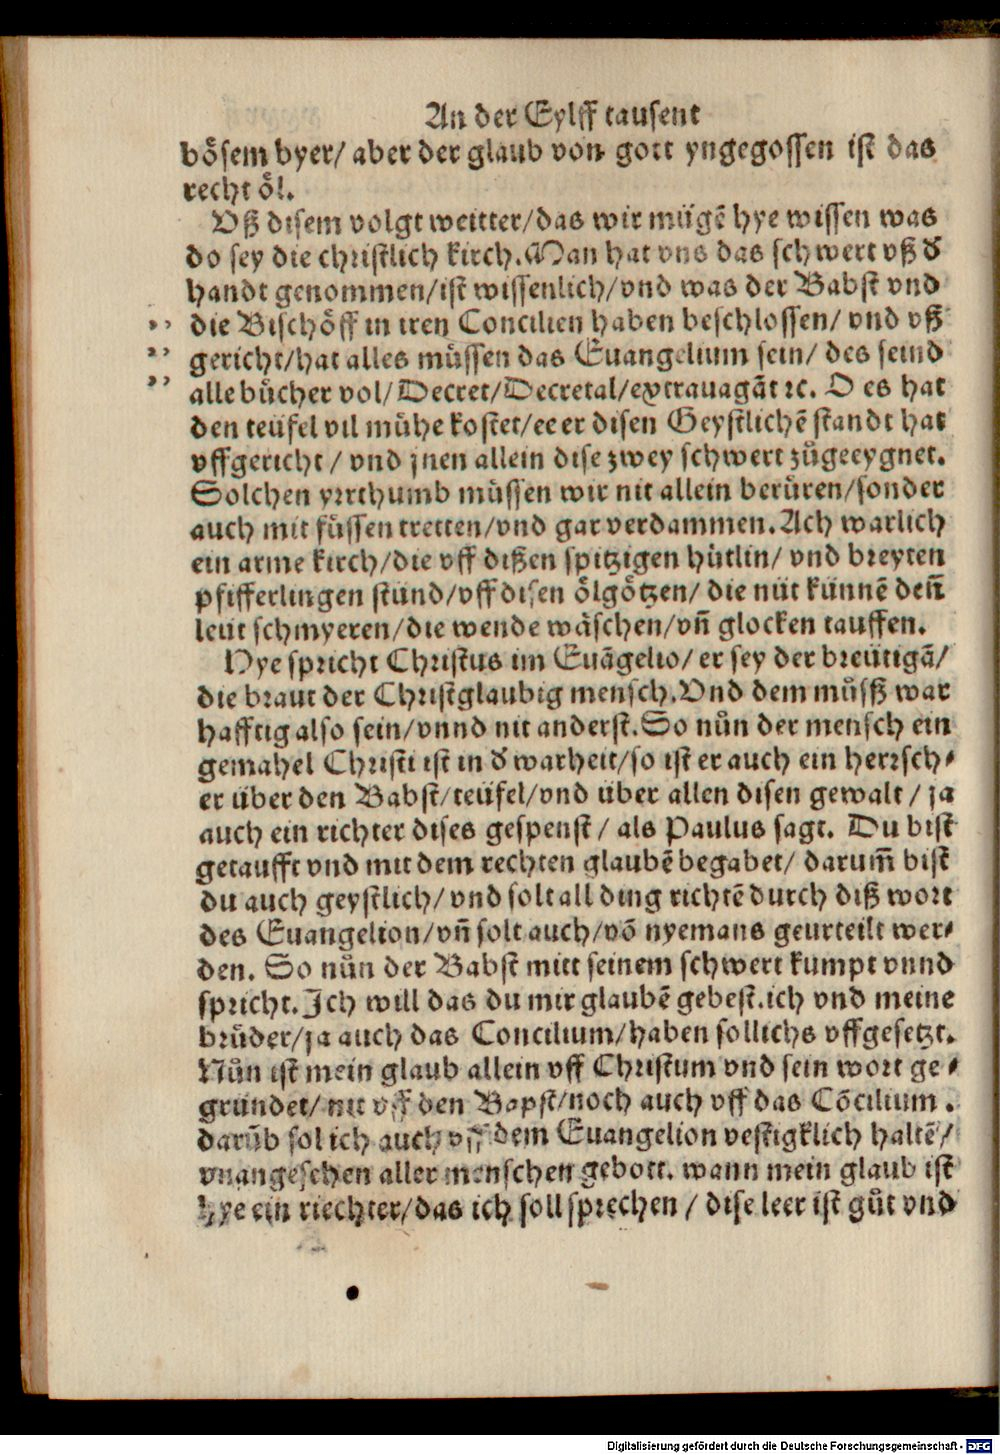 An der Eylff tausent
bôsem byer/ aber der glaub von gott yngegossen ist das
recht ôl.
Vß disem volgt weitter/das wir mügẽ hye wissen was
do sey die christlich kirch. Man hat vns das schwert vß d̃
handt genommen/ist wissenlich/vnd was der Babst vnd
die Bischôff in iren Concilien haben beschlossen/ vnd vß
gericht/hat alles müssen das Euangelium sein/ des seind
alle bücher vol/Decret/Decretal/extrauagãt ꝛc. O es hat
den teüfel vil mühe kostet/ee er disen Geystlichẽ standt hat
vffgericht / vnd jnen allein dise zwey schwert zůgeeygnet.
Solchen yrrthumb müssen wir nit allein berüren/sonder
auch mit füssen tretten/vnd gar verdammen. Ach warlich
ein arme kirch/die vff dißen spitzigen hütlin/ vnd breyten
pfifferlingen stünd/vff disen ôlgôtzen/ die nüt künnẽ deñ
leüt schmyeren/die wende wäschen/vñ glocken tauffen.
Hye spricht Christus im Euãgelio/ er sey der breütigã/
die braut der Christglaubig mensch. Vnd dem můsß war
hafftig also sein/vnnd nit anderst. So nůn der mensch ein
gemahel Christi ist in d̃ warheit/so ist er auch ein herrsch⸗
er über den Babst/teüfel/vnd über allen disen gewalt / ja
auch ein richter dises gespenst / als Paulus sagt. Du bist
getaufft vnd mit dem rechten glaubẽ begabet/ darum̃ bist
du auch geystlich/ vnd solt all ding richtẽ durch diß wort
des Euangelion/vñ solt auch/võ nyemans geurteilt wer⸗
den. So nůn der Babst mitt seinem schwert kumpt vnnd
spricht. Ich will das du mir glaubẽ gebest. ich vnd meine
brůder/ja auch das Concilium/haben sollichs vffgesetzt.
Nůn ist mein glaub allein vff Christum vnd sein wort ge⸗
gründet/ nit vff den Bapst/noch auch vff das Cõcilium .
darũb sol ich auch vff dem Euangelion vestigklich haltẽ/
vnangesehen aller menschen gebott. wann mein glaub ist
hye ein riechter/das ich soll sprechen / dise leer ist gůt vnd
Digitalisierung gefördert durch die Deutsche Forschungsgemeinschaft - DFG